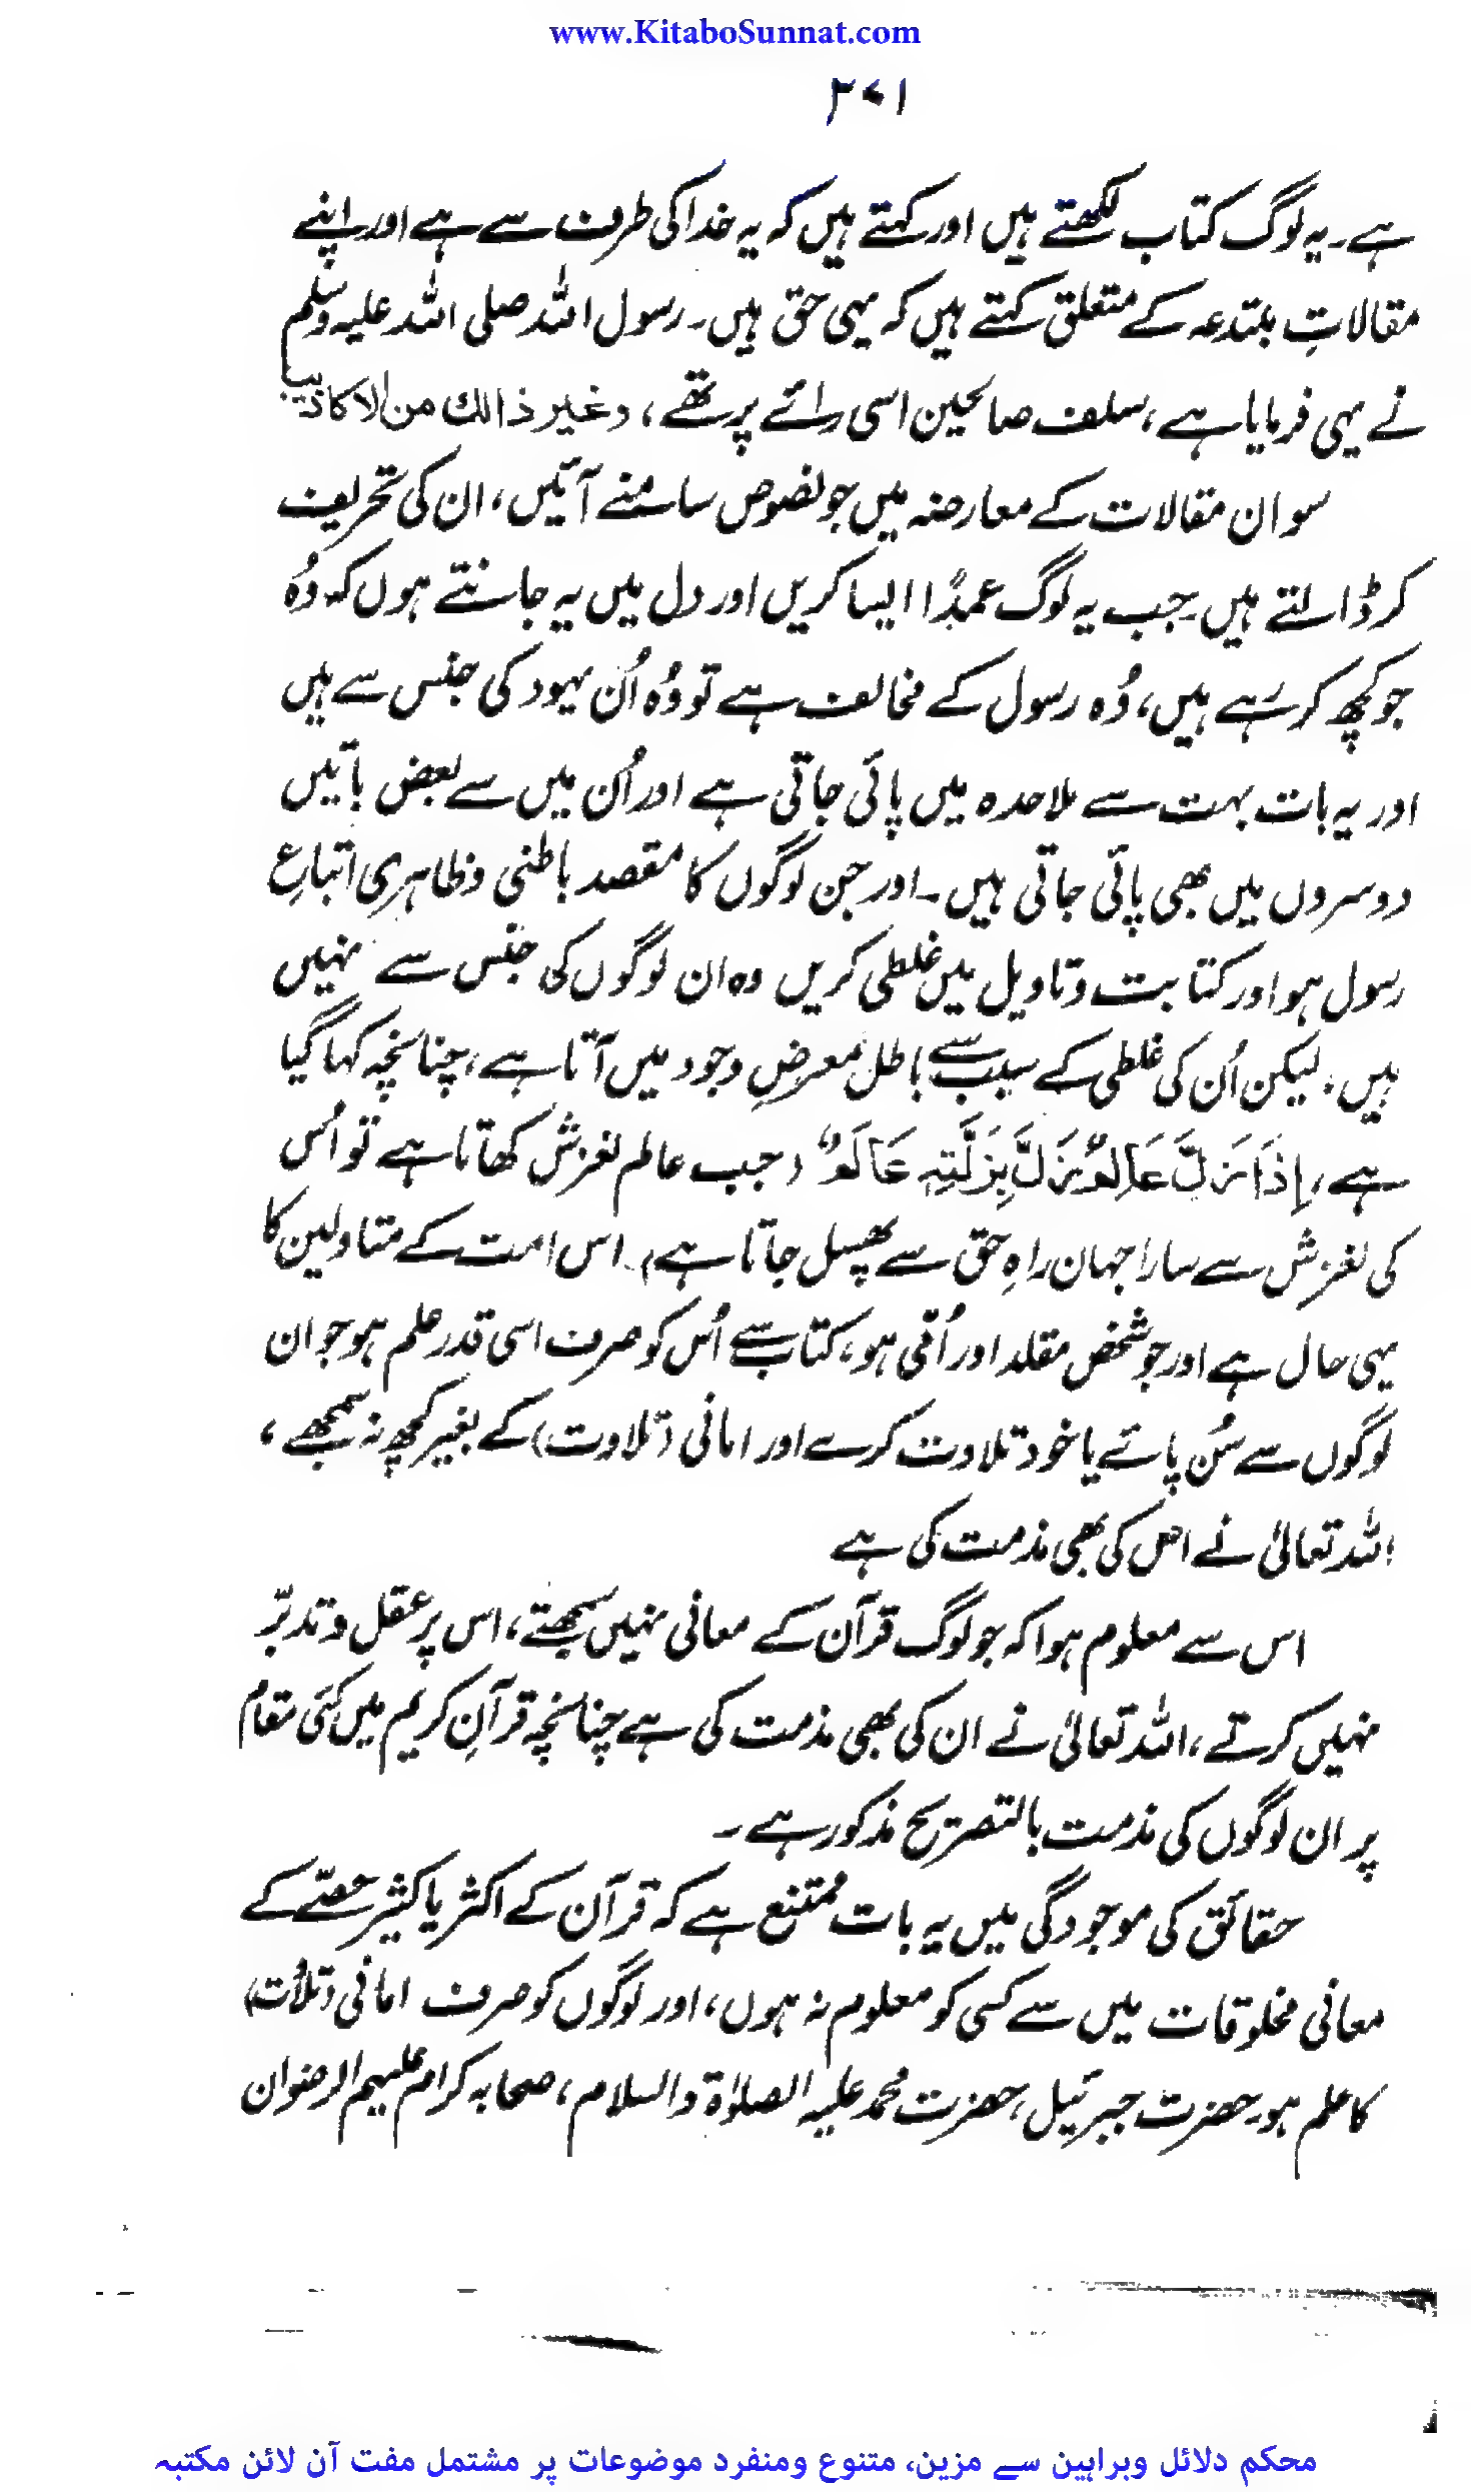 www.KitaboSunnat.com
۳۷۱
ہے۔ یہ لوگ کتاب لکھتے ہیں اور کہتے ہیں کہ یہ خدا کی طرف سے ہے اور اپنے
مقالاتِ مبتدعہ کے متعلق کہتے ہیں کہ یہی حق ہیں۔ رسول اللہ صلی اللہ علیہ وسلم
نے یہی فرمایا ہے، سلف صالحین اسی رائے پر تھے، وغیر ذالك من الاكاذيب
سو ان مقالات کے معارضہ میں جو نصوص سامنے آئیں، ان کی تحریف
کر ڈالتے ہیں۔ جب یہ لوگ عمدًا ایسا کریں اور دل میں یہ جانتے ہوں کہ وُہ
جو کچھ کر رہے ہیں، وُہ رسول کے مخالف ہے تو وُہ اُن یہود کی جنس سے ہیں
اور یہ بات بہت سے ملاحدہ میں پائی جاتی ہے اور اُن میں سے بعض باتیں
دوسروں میں بھی پائی جاتی ہیں۔ اور جن لوگوں کا مقصد باطنی وظاہری اتباعِ
رسول ہو اور کتابت وتاویل میں غلطی کریں وہ ان لوگوں کی جنس سے نہیں
ہیں، لیکن اُن کی غلطی کے سبب سے باطل معرضِ وجود میں آتا ہے، چنانچہ کہا گیا
ہے، إِذَا زَلَّ عَالِمٌ زَلَّ بِزَلَّتِهِ عَالَمٌ (جب عالم لغزش کھاتا ہے تو اُس
کی لغزش سے سارا جہان راہِ حق سے پھسل جاتا ہے)۔ اس امت کے متاولین کا
یہی حال ہے اور جو شخص مقلد اور اُمّی ہو، کتاب سے اُس کو صرف اسی قدر علم ہو جو ان
لوگوں سے سُن پائے یا خود تلاوت کرے اور امانی (تلاوت) کے بغیر کچھ نہ سمجھے،
اللہ تعالیٰ نے اس کی بھی مذمت کی ہے
اس سے معلوم ہوا کہ جو لوگ قرآن کے معانی نہیں سمجھتے، اس پر عقل وتدبّر
نہیں کرتے، اللہ تعالیٰ نے ان کی بھی مذمت کی ہے چنانچہ قرآنِ کریم میں کئی مقام
پر ان لوگوں کی مذمت بالتصریح مذکور ہے۔
حقائق کی موجودگی میں یہ بات مُمتنع ہے کہ قرآن کے اکثر یا کثیر حصّے کے
معانی مخلوقات میں سے کسی کو معلوم نہ ہوں، اور لوگوں کو صرف امانی (تلاوت)
کا علم ہو۔ حضرت جبرئیل، حضرت محمد علیہ الصلوٰۃ والسلام، صحابہ کرام علیہم الرضوان
محکم دلائل وبراہین سے مزین، متنوع ومنفرد موضوعات پر مشتمل مفت آن لائن مکتبہ